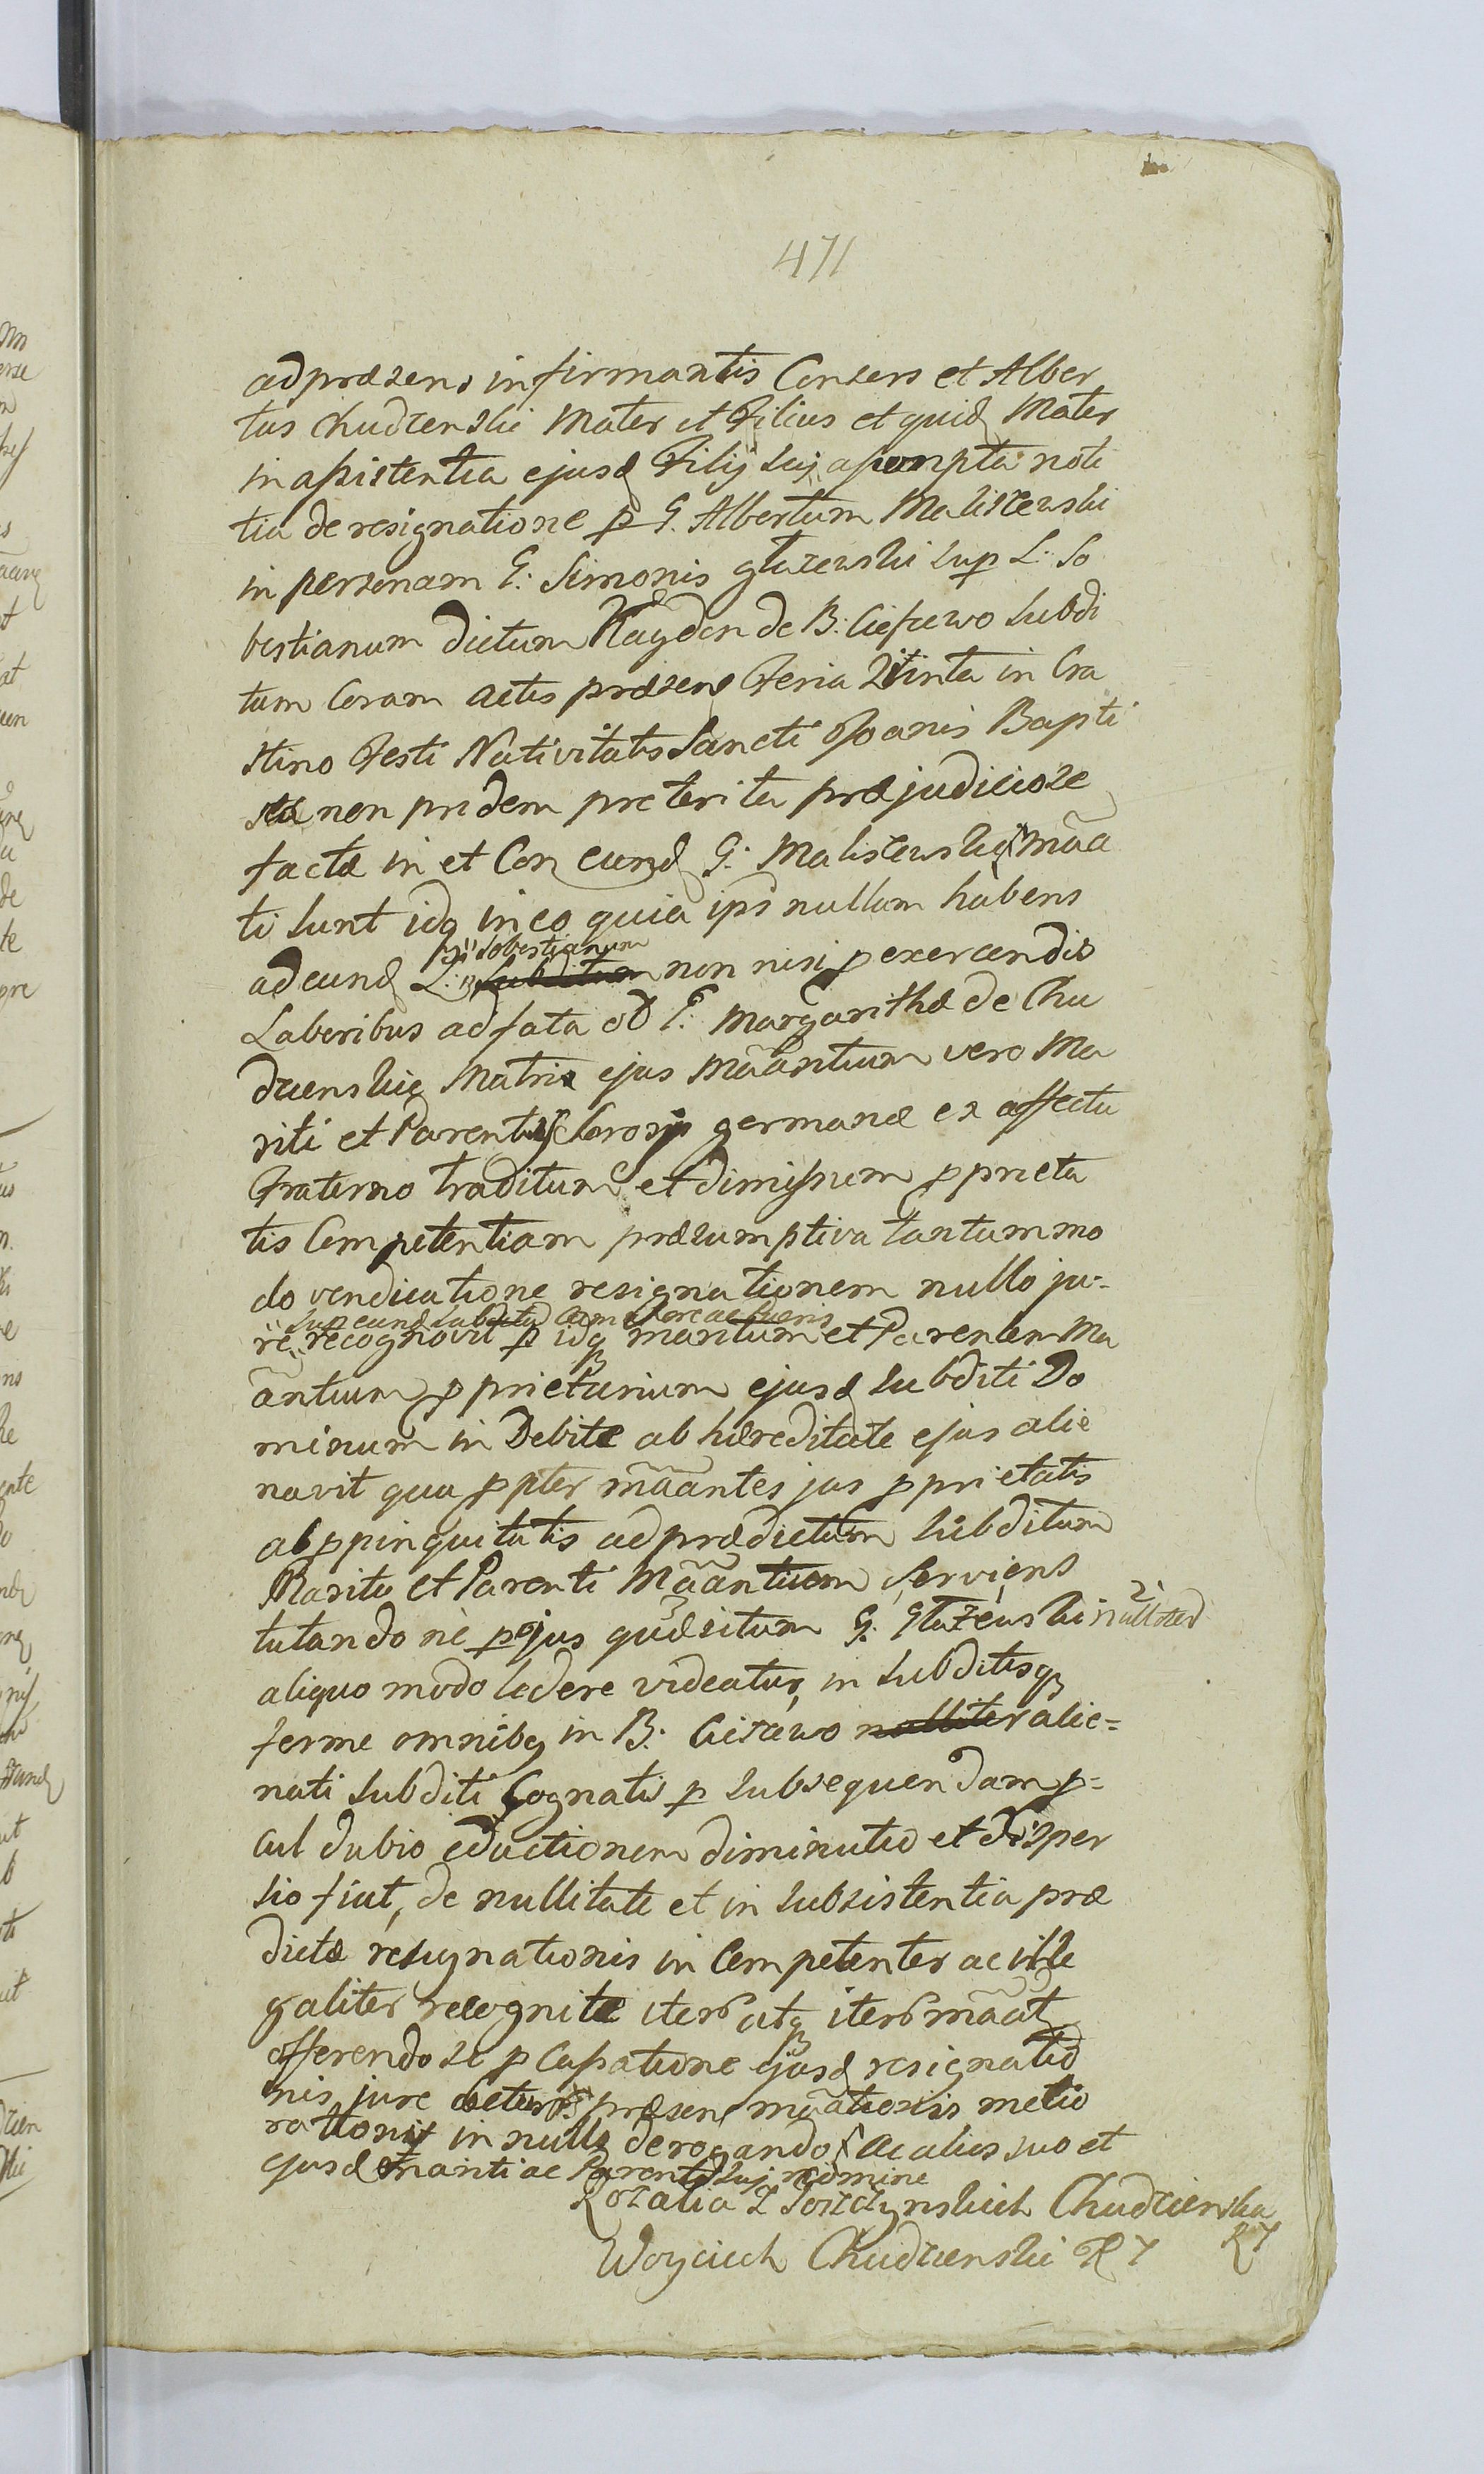 471
ad præsens infirmantis Consors et Alber
tus Chudzenski Mater et Filius et quid Mater
in assistentia ejusd Filij Sui assumpta noti
tia de resignatione p G. Albertum Maliszewski
in personam G: Simonis Głazewski sup L: Se
bestianum dictum Kaydon de B: Ciessewo Subdi
tum Coram Actis præsen Feria Quinta in Cra
stino Festi Nativitatis Sancti Joanis Bapti
stæ non pridem preterita præjudiciose
factæ in et Con eund G: Maliszewski mãa
ti sunt idq in eo quia ipse nullum habens
ad eund L: Sebestianum Subditum non nisi p exercendis
Laboribus ad fata G: Margarithæ de Chu
dzenskie Matris ejus Mãantium vero Ma
riti et Parentis Sororis germanæ ex affectu
Fraterno traditum et dimissum pprieta
tis Competentiam præsumptiva tantummo
do vendicatione resignationem nullo ju-
sup eund Subditum
re recognovit p idq maritum et Parentem Ma
antium pprietarium ejusd Subditi Do
minum in Debite ab hæreditate ejus alie
navit qua ppter mãantes jus pprietatis
ab ppinquitatis ad prædictum Subditum
Marito et Parenti Mãantium Serviens
tutando ne p ejus quæsitum G. Głazewski nulliter
aliquo modo ledere videatur, in Subditisq
ferme omnibq in B. Ciszewo nulliter alie=
nati Subditi Cognatis p Subsequendam p=
cul dubio eductionem diminutio et disper
sio fiat, de nullitate et in subsistentia præ
dictæ resignationis in Competenter ac ille
galiter recognitæ iterõ atq iterõ mãat
offerendo se p Cassatione ejusd resignatio
nis jure acturos præsen mãationis melio
rationis in nullo derogando Ac alias suo et
ejusd Mariti ac Parentis Sui nomine
Rozalia Z Chudzienska
R7
Woyciech Chudzienski R 7